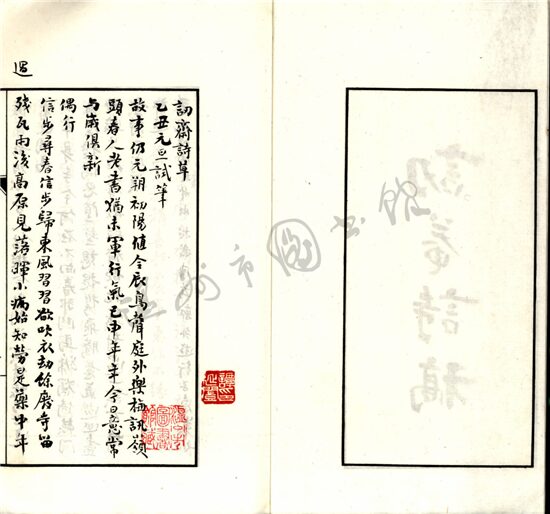 訒齋詩草
乙丑元旦試筆
故事仍元朔初陽值令辰鳥聲庭外樂梅訊嶺
頭春人老書猶未軍行氣已申年年今日意常
与歲俱新
偶行
信步尋春信步歸東風習習欲吹衣劫餘廢寺留
殘瓦雨後高原見落暉小病始知勞是藥中年
州市圖书館